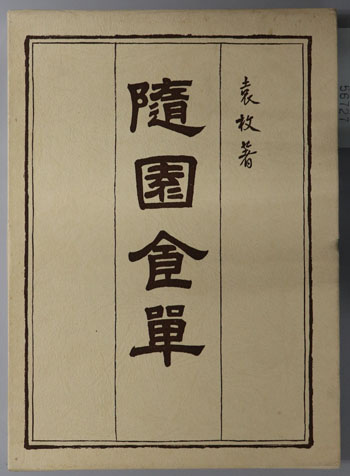 袁枚著
隨園食單
56727